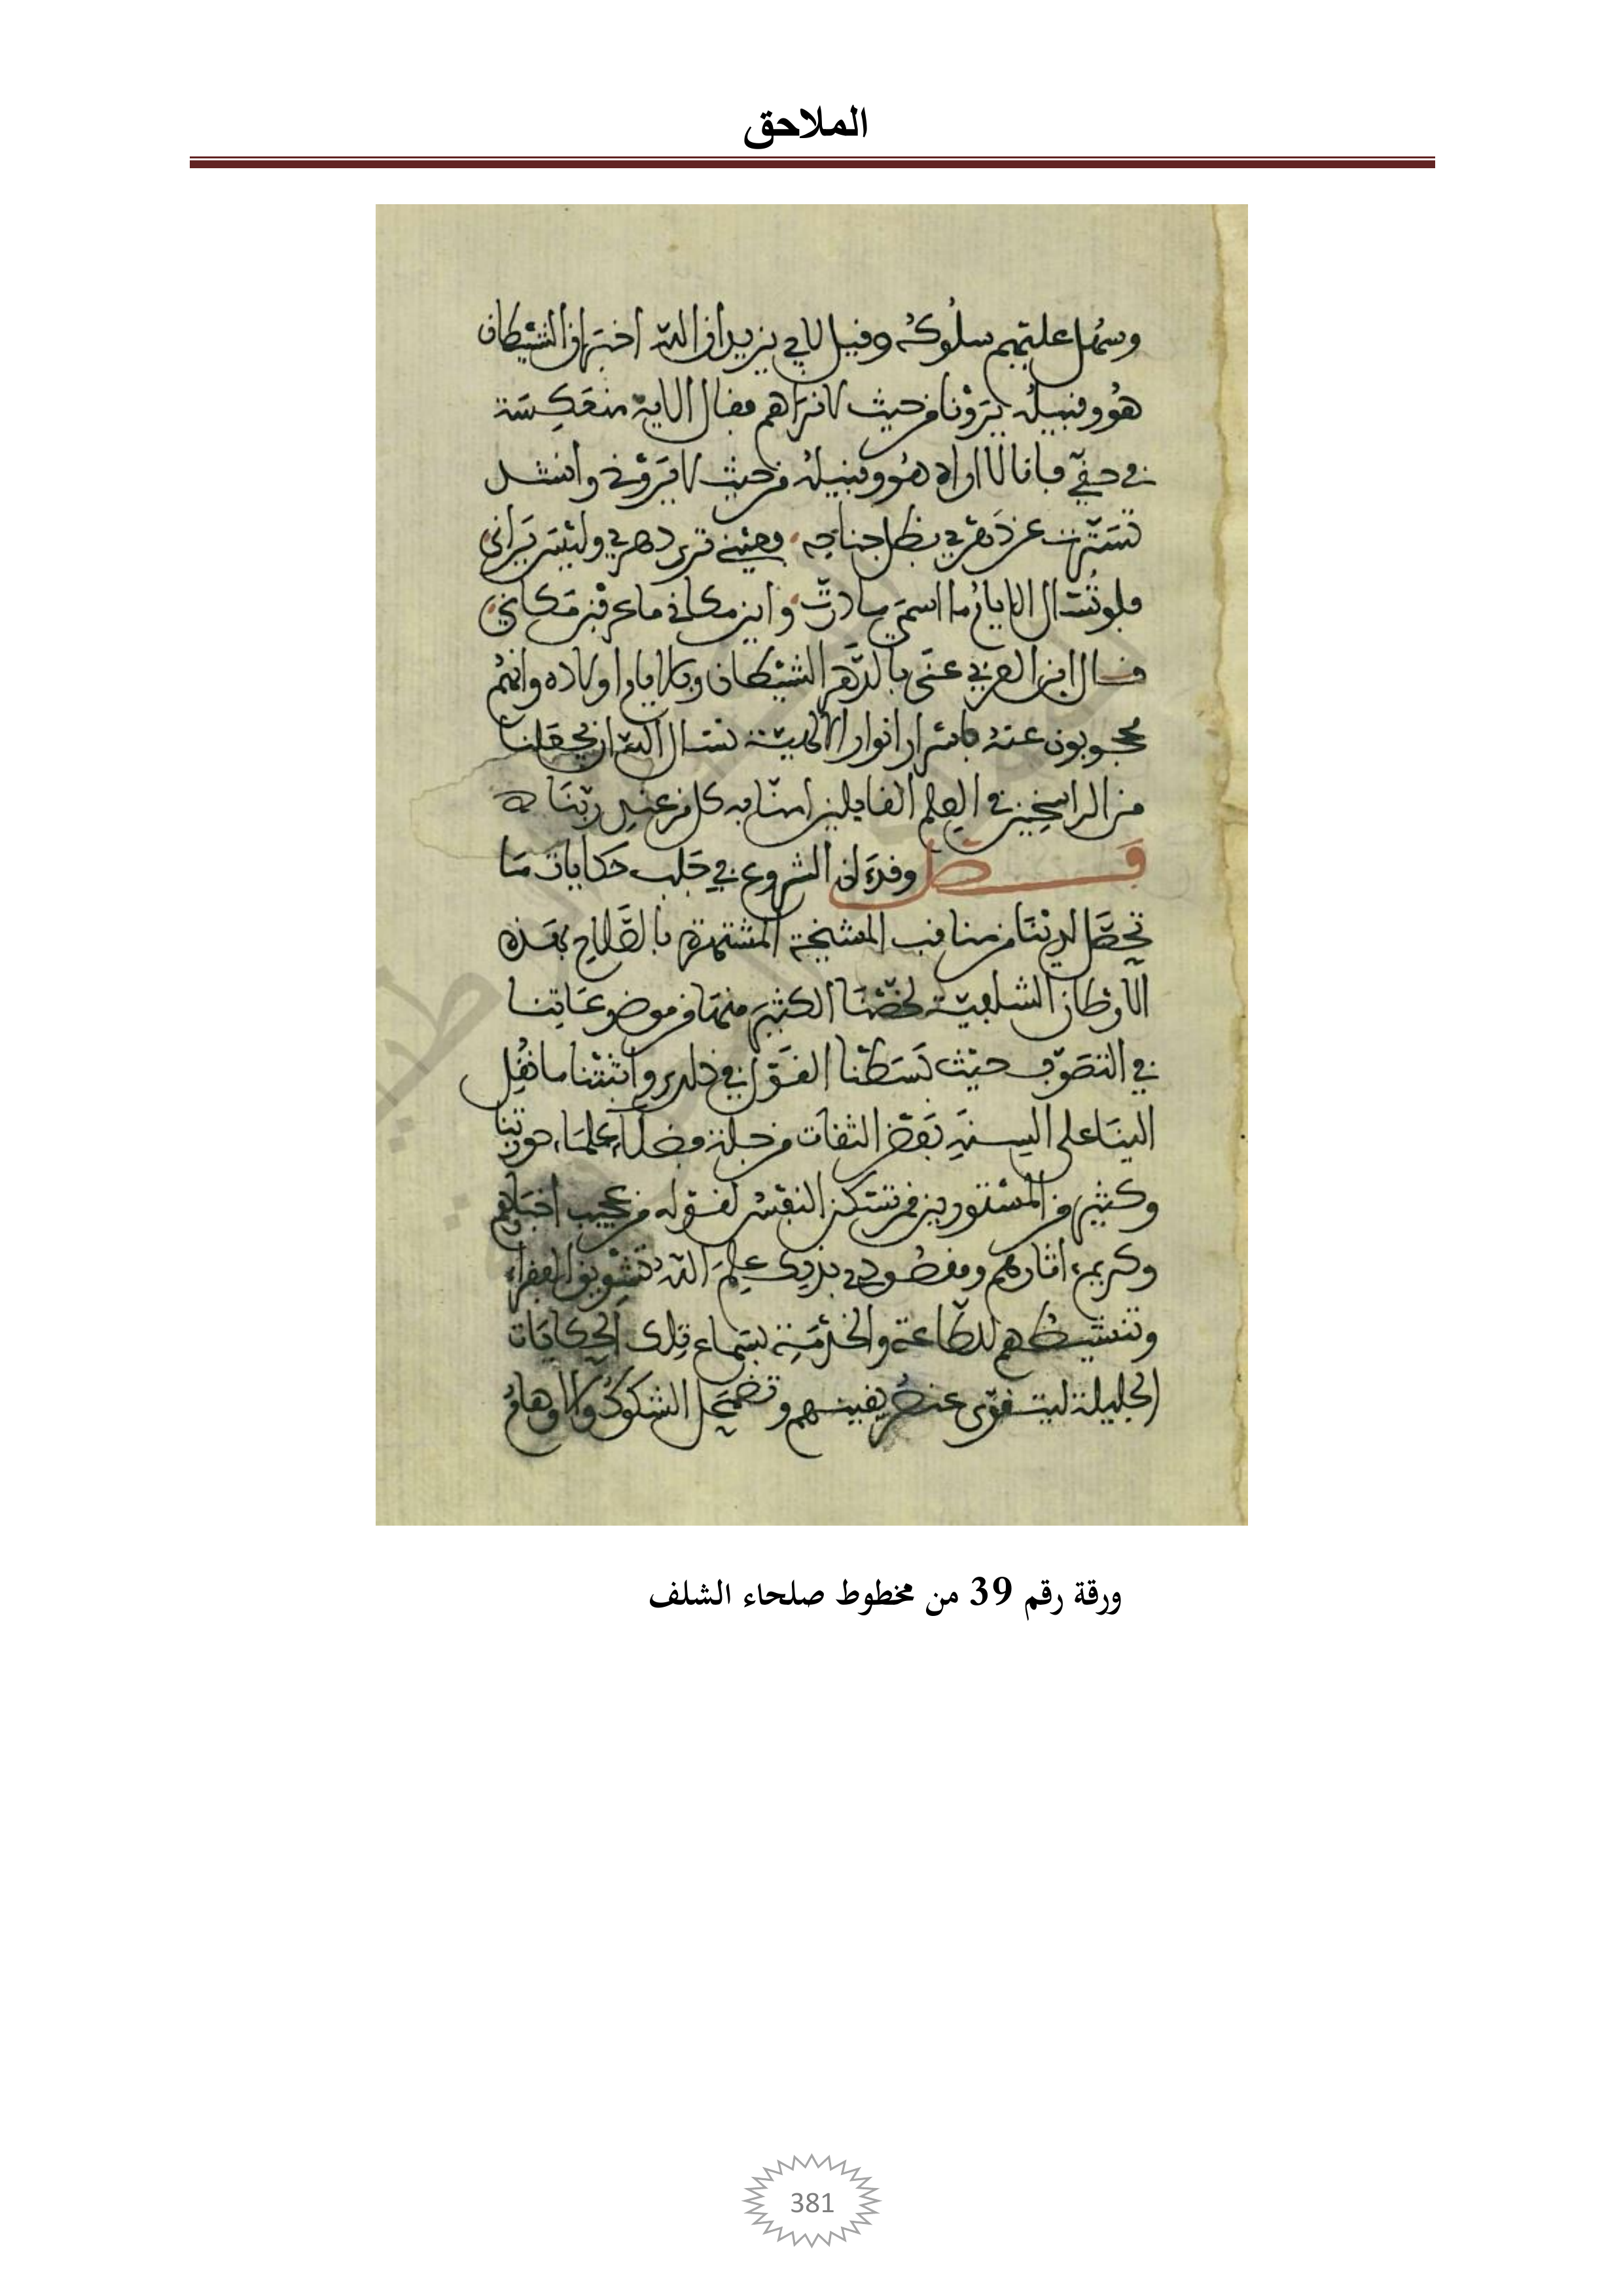 الملاحق
وسهل عليهم سلوكه وقيل لابي يزيد ان الله اخبر ان الشيطان
هو وقبيله يرونا من حيث لا نراهم فقال الاية منعكسة
في حقي فانا لا اراه هو وقبيله من حيث لا يروني وانشد
تسترت عن دهري بظل جناحه فعيني ترى دهري وليس يراني
فلو تسال الايام ما اسمي ما درت واين مكاني ما عرفن مكاني
قال ابن العربي عنى بالدهر الشيطان وبالايام اولاده وانهم
محجوبون عنه باسرار انوار الالهية نسال الله ان يجعلنا
من الراسخين في العلم القايلين امنا به كل من عند ربنا
فصل وقد ان الشروع في جلب حكايات مما
تحصل لدينا من مناقب المشيخة المشتهرة بالصلاح بهذه
الاوطان الشلفية لخصنا الكثير منها من موضوعاتنا
في التصوف حيث بسطنا القول في ذلك واثبتنا ما نقل
الينا على السنة بعض الثقات من جلة فضلاء علماء حوزتنا
وكثير من المستورين ممن تسكن النفس لقوله من عجيب اخبارهم
وكريم اثارهم ومقصودي بذلك علم الله تشويق الفقراء
وتنشيطهم للطاعة والخدمة بسماع تلك الحكايات
الجليلة ليتقوى عنصر يقينهم وتضمحل الشكوك والاوهام
ورقة رقم 39 من مخطوط صلحاء الشلف
381